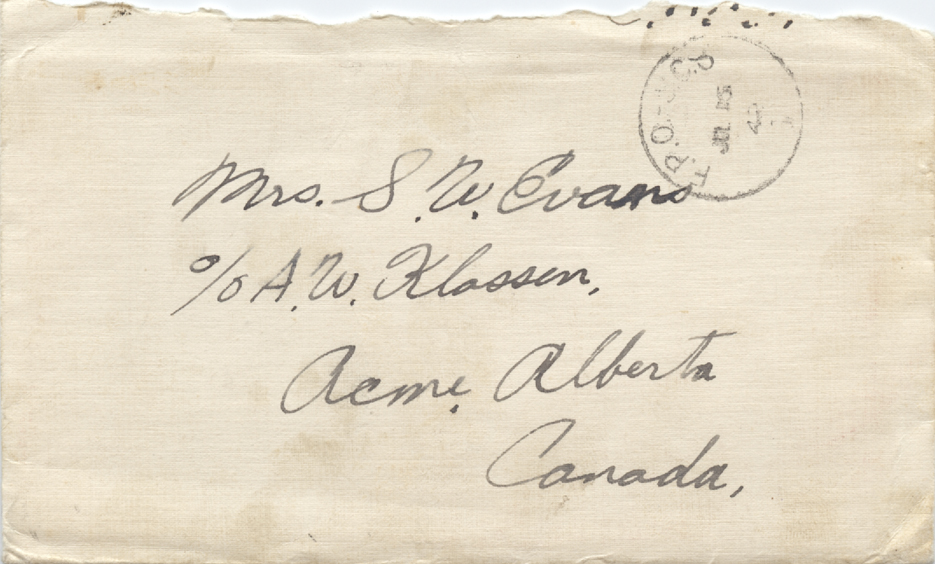 F.P.O.
JUL 15
Mrs. S. W. Evans
c/o A. W. Klassen,
Acme, Alberta
Canada,